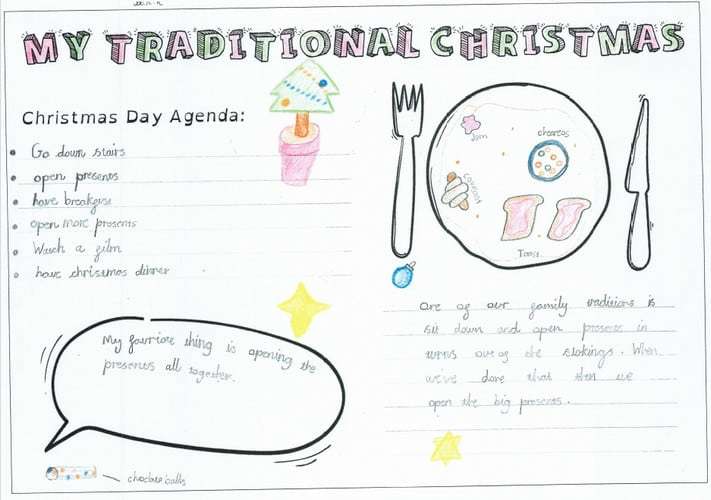 MY TRADITIONAL CHRISTMAS
Christmas Day Agenda:
Go down stairs
open presents
have breakfast
open more presents
Watch a film
have christmas dinner
My favriote thing is opening the
presents all together.
chocolate balls
Jam
cheerios
Toast
One of our family traditions is
sit down and open presents in
turns out of the stokings. When
we've done that then we
open the big presents.